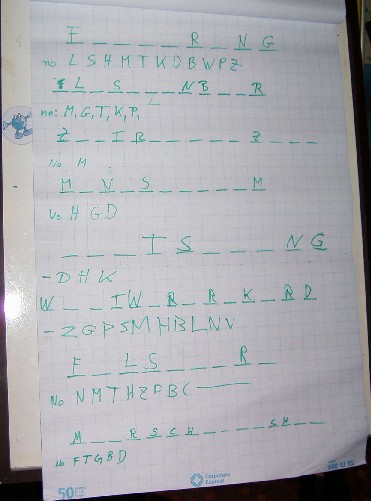 F _ _ _ _ _ R _ N G
no L S H M T K D B W P Z
F L _ S _ _ _ N B _ _ R
no: M, G, T, K, P,
Z _ _ I R _ _ _ _ _ Z _ _ _
No M
M _ V _ S _ _ _ _ _ M
H G D
_ _ _ I S _ _ _ N G
- D H K
W _ _ I W _ R _ R _ K _ R D
- Z G P S M H B L N V
F _ _ L S _ _ _ R _
No N M T H Z P B C
M _ _ R S C H _ _ _ _ S H _ _
No F T G B D
50
Corporate Express